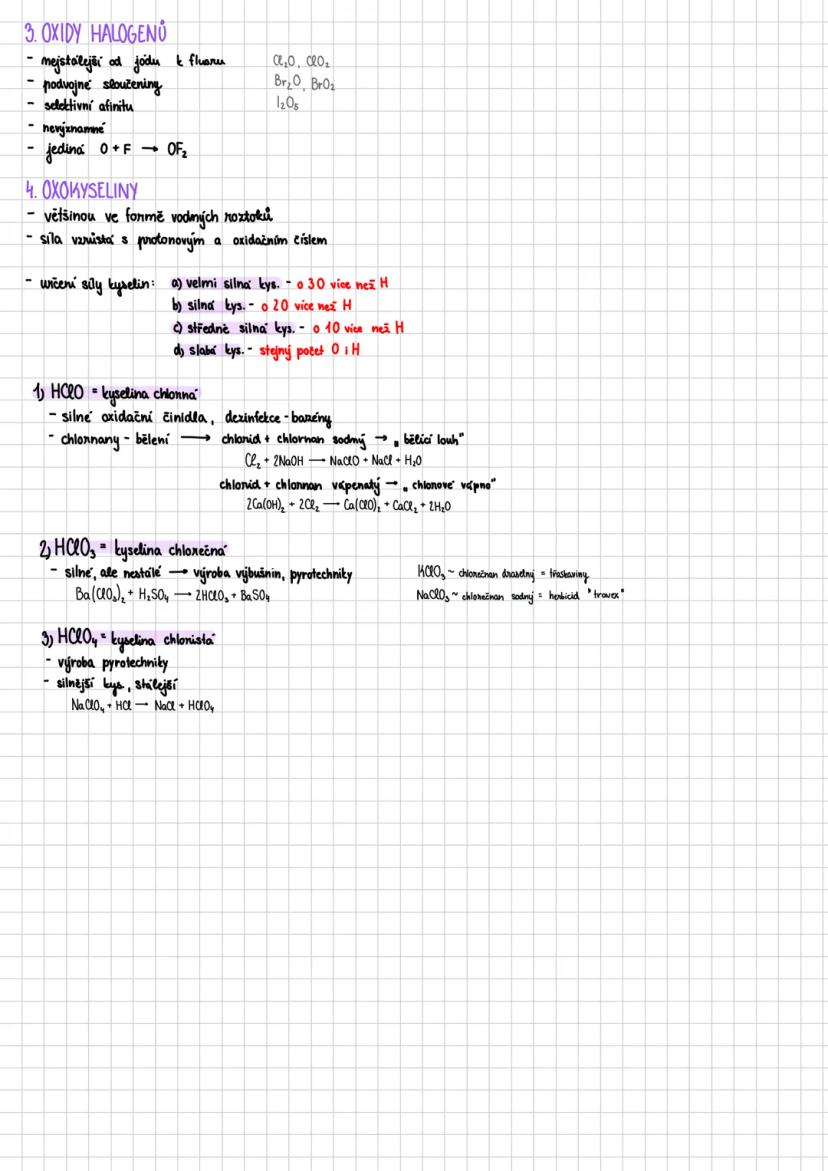 3. OXIDY HALOGENŮ
- nejstálejší od jódu k fluoru Cl₂O, ClO₂
- podvojné sloučeniny Br₂O, BrO₂
- selektivní afinitu I₂O₅
- nevýznamné
- jediná O + F → OF₂
4. OXOKYSELINY
- většinou ve formě vodných roztoků
- síla vzrůstá s protonovým a oxidačním číslem
- určení síly kyselin: a) velmi silná kys. - o 3O více než H
b) silná kys. - o 2O více než H
c) středně silná kys. - o 1O více než H
d) slabá kys. - stejný počet O i H
1) HClO = kyselina chlorná
- silné oxidační činidla, dezinfekce - bazény
- chlornany - bělení → chlorid + chlornan sodný → „bělící louh"
Cl₂ + 2NaOH → NaClO + NaCl + H₂O
chlorid + chlornan vápenatý → „chlorové vápno"
2Ca(OH)₂ + 2Cl₂ → Ca(ClO)₂ + CaCl₂ + 2H₂O
2) HClO₃ = kyselina chlorečná
- silné, ale nestálé → výroba výbušnin, pyrotechniky KClO₃ ~ chlorečnan draselný = třaskaviny
Ba(ClO₃)₂ + H₂SO₄ → 2HClO₃ + BaSO₄ NaClO₃ ~ chlorečnan sodný = herbicid "travex"
3) HClO₄ = kyselina chloristá
- výroba pyrotechniky
- silnější kys, stálejší
NaClO₄ + HCl → NaCl + HClO₄